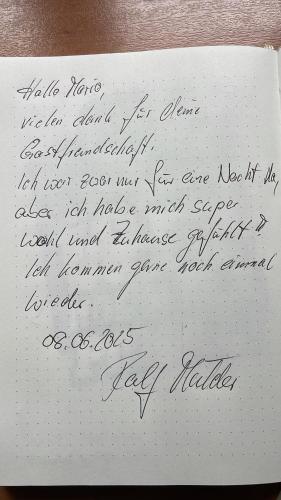 Hallo Mario,
vielen dank für Deine
Gastfrendschaft.
Ich war zwar nur für eine Nacht da,
aber ich habe mich super
wohl und Zuhause gefühlt!!
Ich kommen gerne noch einmal
wieder.
08.06.2025
Ralf